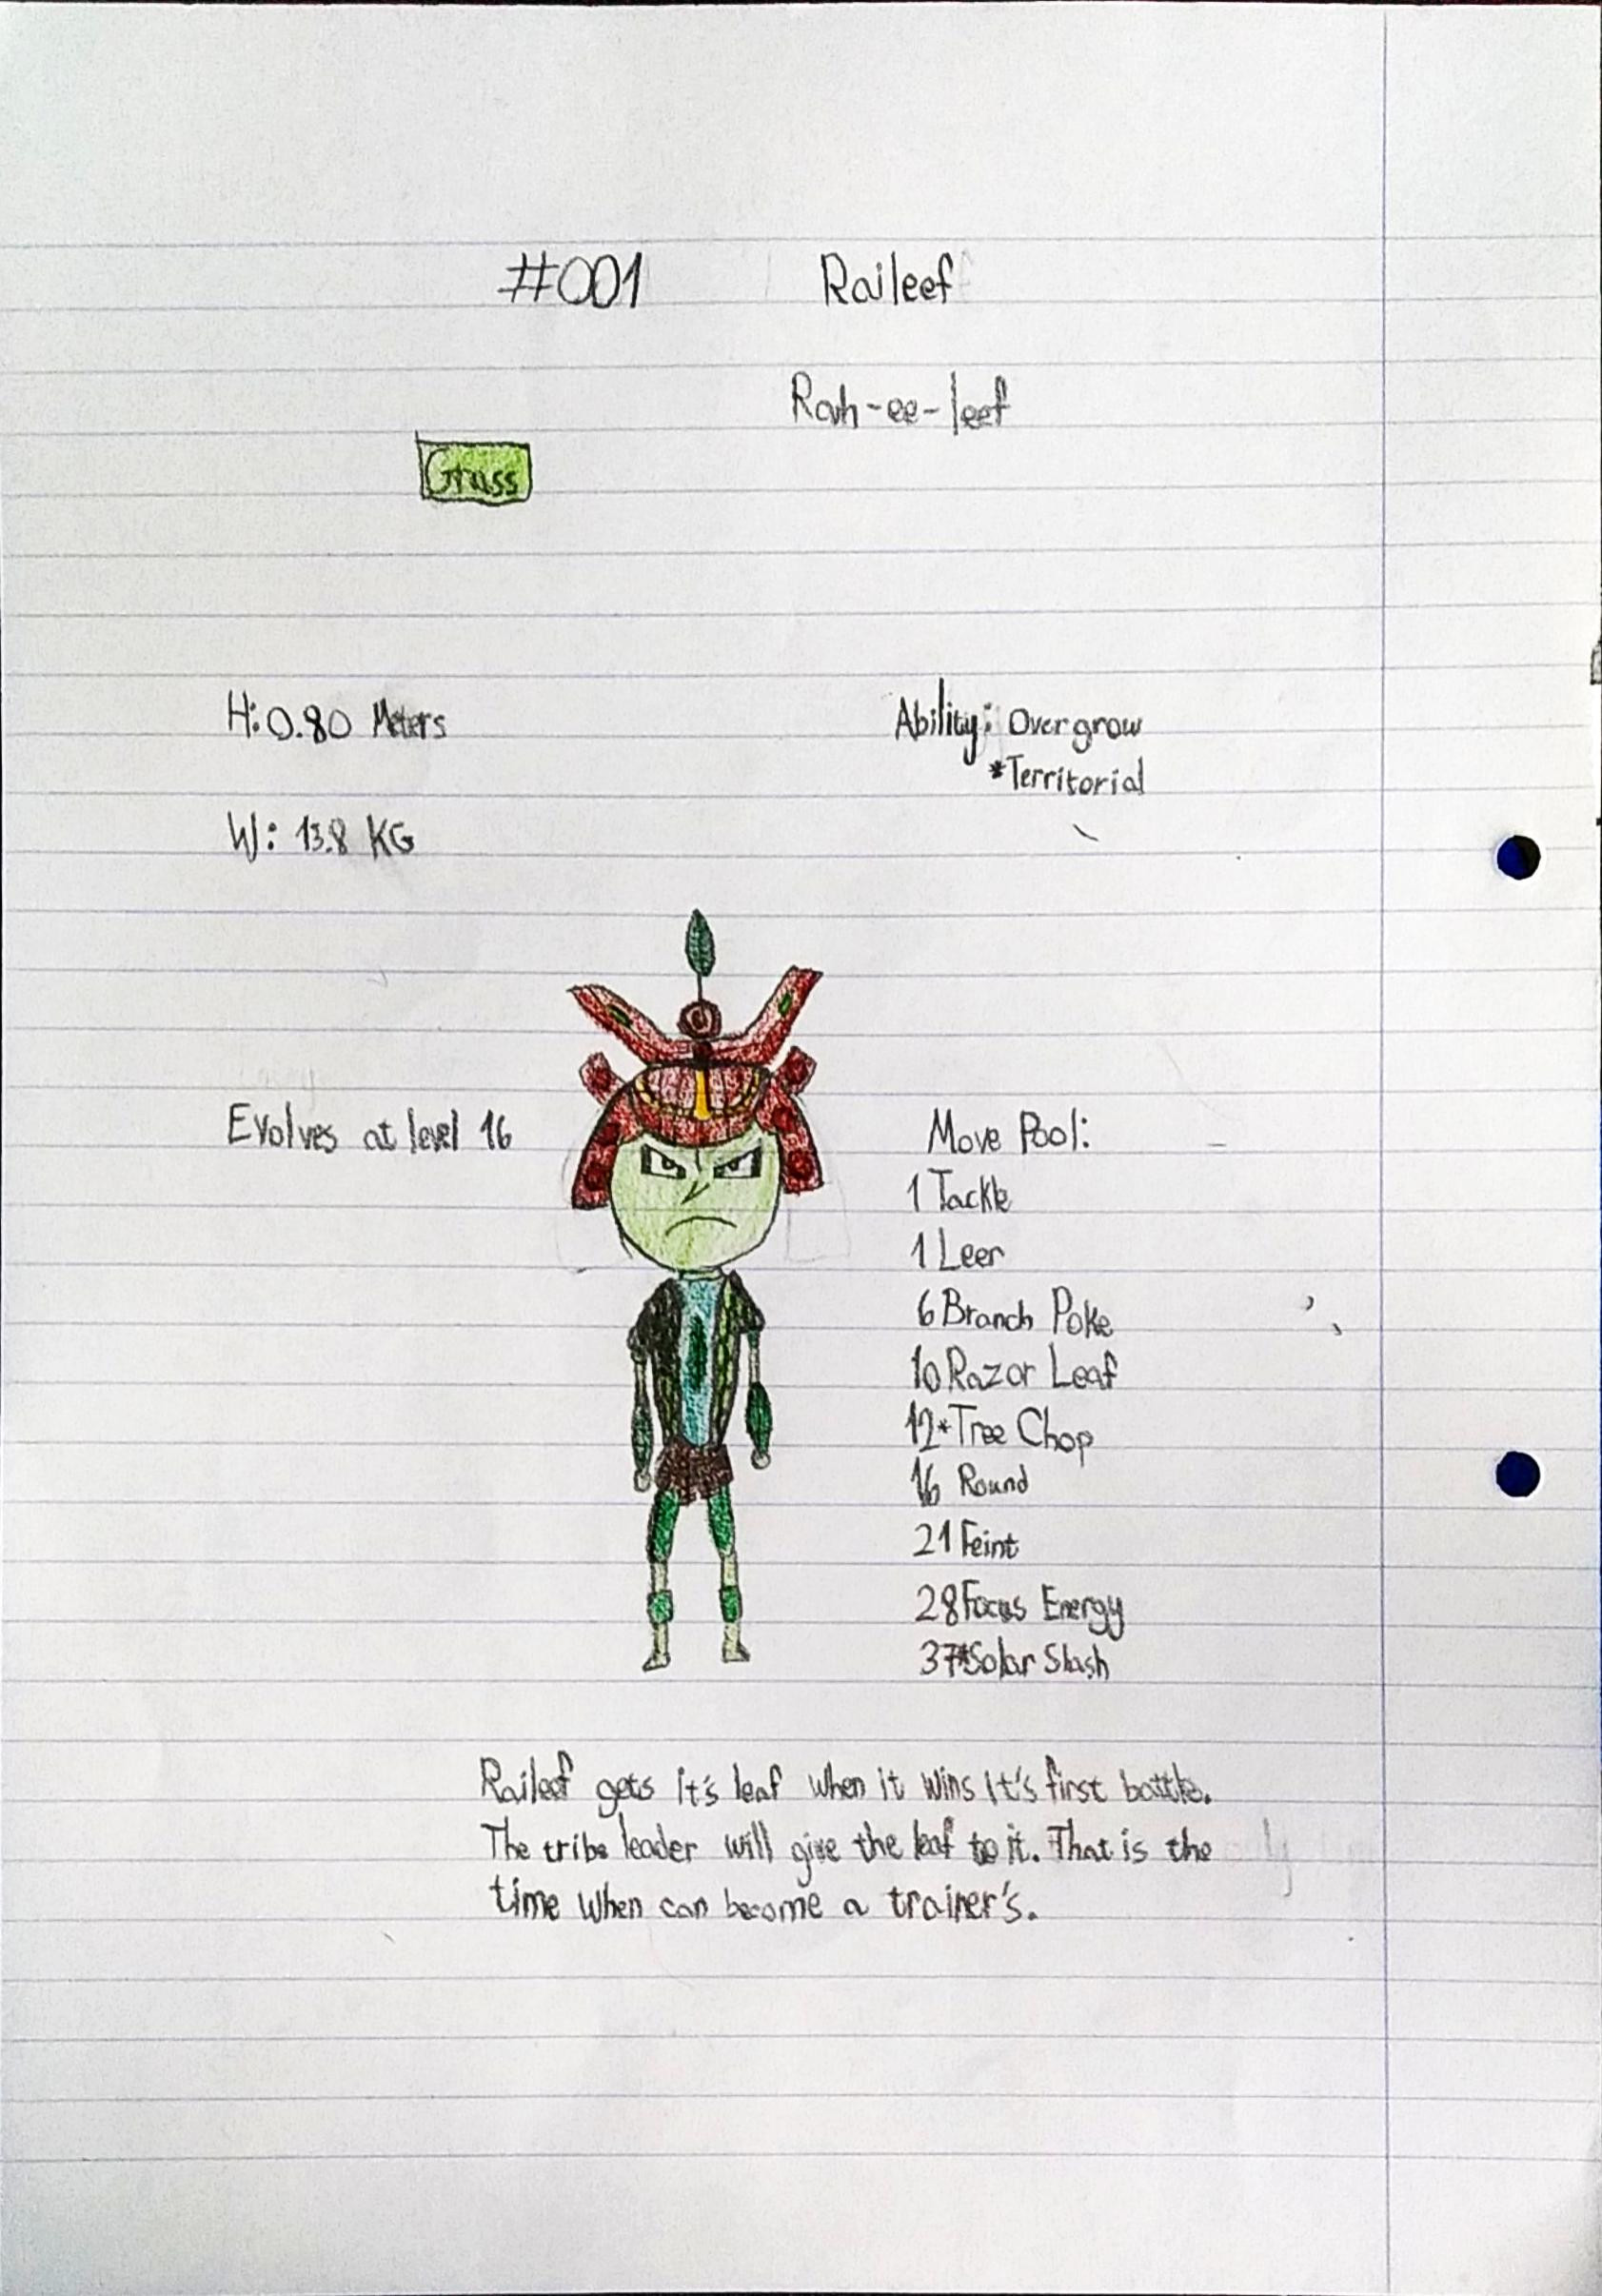 #001 Raileef
Rah-ee-leef
Grass
H: 0.80 Meters
Ability: Overgrow
*Territorial
W: 13.8 KG
Evolves at level 16
Move Pool:
1 Tackle
1 Leer
6 Branch Poke
10 Razor Leaf
12 *Tree Chop
16 Round
21 Feint
28 Focus Energy
37 *Solar Slash
Raileef gets it's leaf when it wins it's first battle.
The tribe leader will give the leaf to it. That is the
time when can become a trainer's.